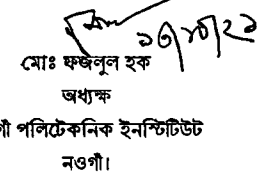 ১৩/১০/২১
মোঃ ফজলুল হক
অধ্যক্ষ
গাঁ পলিটেকনিক ইনস্টিটিউট
নওগাঁ।